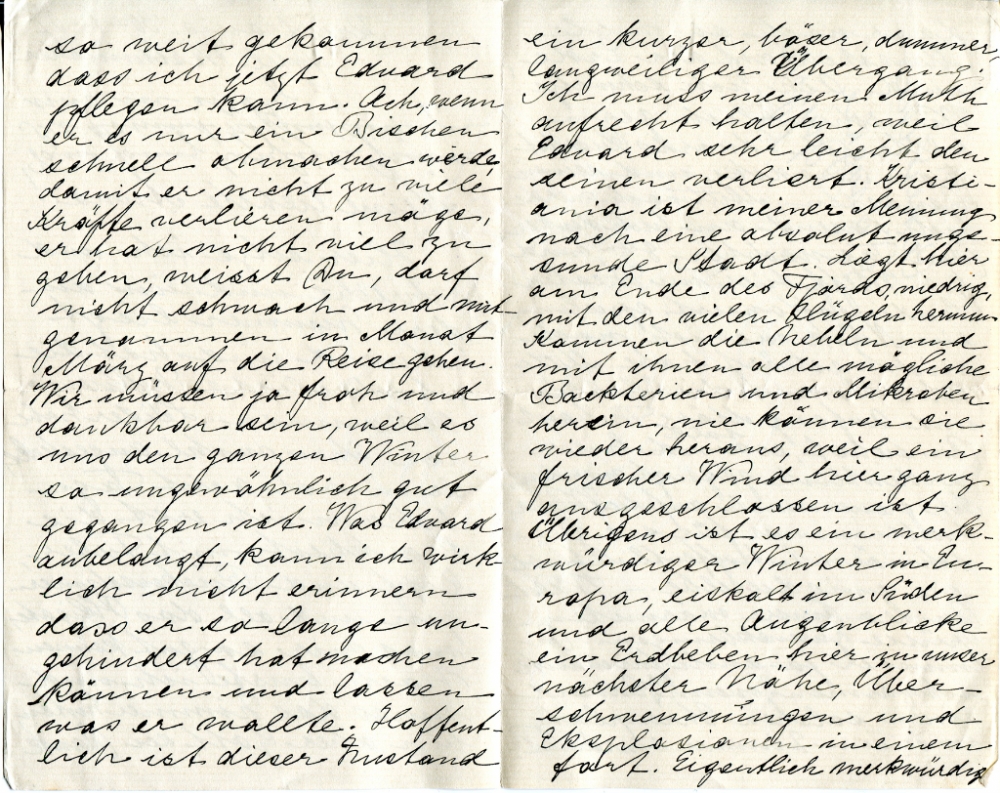 so weit gekommen
dass ich jetzt Edvard
pflegen kann. Ach, wenn
er es nur ein Bischen
schnell abmachen werde,
damit er nicht zu viele
Kräffe verlieren möge,
er hat nicht viel zu
geben, weisst Du, darf
nicht schwach und mit-
genommen in Monat
März auf die Reise gehen.
Wir müssen ja froh und
dankbar sein, weil es
uns den ganzen Winter
so ungewöhnlich gut
gegangen ist. Was Edvard
anbelangt, kann ich wirk-
lich nicht erinnern
dass er so lange un-
gehindert hat machen
können und lassen
was er wollte. Hoffent-
lich ist dieser Zustand
ein kurzer, böser, dummer,
langweiliger Übergang.
Ich muss meinen Muth
aufrecht halten, weil
Edvard sehr leicht den
seinen verliert. Kristi-
ania ist meiner Meinung
nach eine absolut unge-
sunde Stadt. Legt hier
am Ende des Fjords, niedrig,
mit den vielen Hügeln herum
Kommen die Nebeln und
mit ihnen alle mögliche
Backterien und Mikroben
herein, nie können sie
wieder heraus, weil ein
frischer Wind hier ganz
ausgeschlossen ist.
Übrigens ist es ein merk-
würdiger Winter in Eu-
ropa, eiskalt im Süden
und alle Augenblicke
ein Erdbeben hier in unser
nächster Nähe, Über-
schwemmungen und
Eksplosionen in einem
fort. Eigentlich merkwürdig